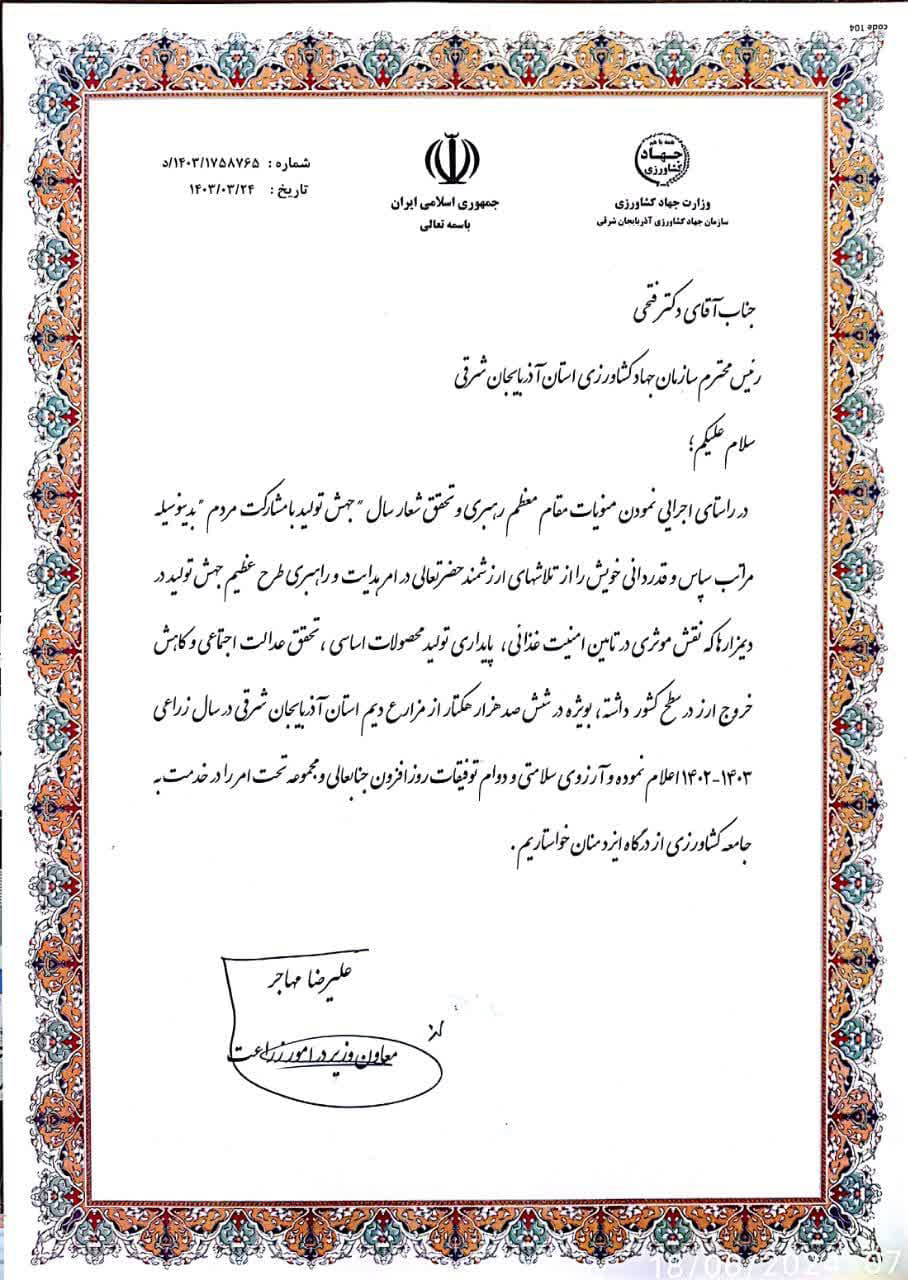 code 104
همه با هم
جهاد
کشاورزی
وزارت جهاد کشاورزی
سازمان جهاد کشاورزی آذربایجان شرقی
جمهوری اسلامی ایران
باسمه تعالی
شماره : ۱۴۰۳/۱۷۵۸۷۶۵/د
تاریخ : ۱۴۰۳/۰۳/۲۴
جناب آقای دکتر فتحی
رئیس محترم سازمان جهاد کشاورزی استان آذربایجان شرقی
سلام علیکم؛
در راستای اجرایی نمودن منویات مقام معظم رهبری و تحقق شعار سال "جهش تولید با مشارکت مردم" بدینوسیله
مراتب سپاس و قدردانی خویش را از تلاشهای ارزشمند حضرتعالی در امر هدایت و راهبری طرح عظیم جهش تولید در
دیمزارها که نقش موثری در تامین امنیت غذائی، پایداری تولید محصولات اساسی، تحقق عدالت اجتماعی و کاهش
خروج ارز در سطح کشور داشته، بویژه در شش صد هزار هکتار از مزارع دیم استان آذربایجان شرقی در سال زراعی
۱۴۰۲-۱۴۰۳ اعلام نموده و آرزوی سلامتی و دوام توفیقات روزافزون جنابعالی و مجموعه تحت امر را در خدمت به
جامعه کشاورزی از درگاه ایزد منان خواستاریم.
علیرضا مهاجر
معاون وزیر در امور زراعت
18/06/2024 07